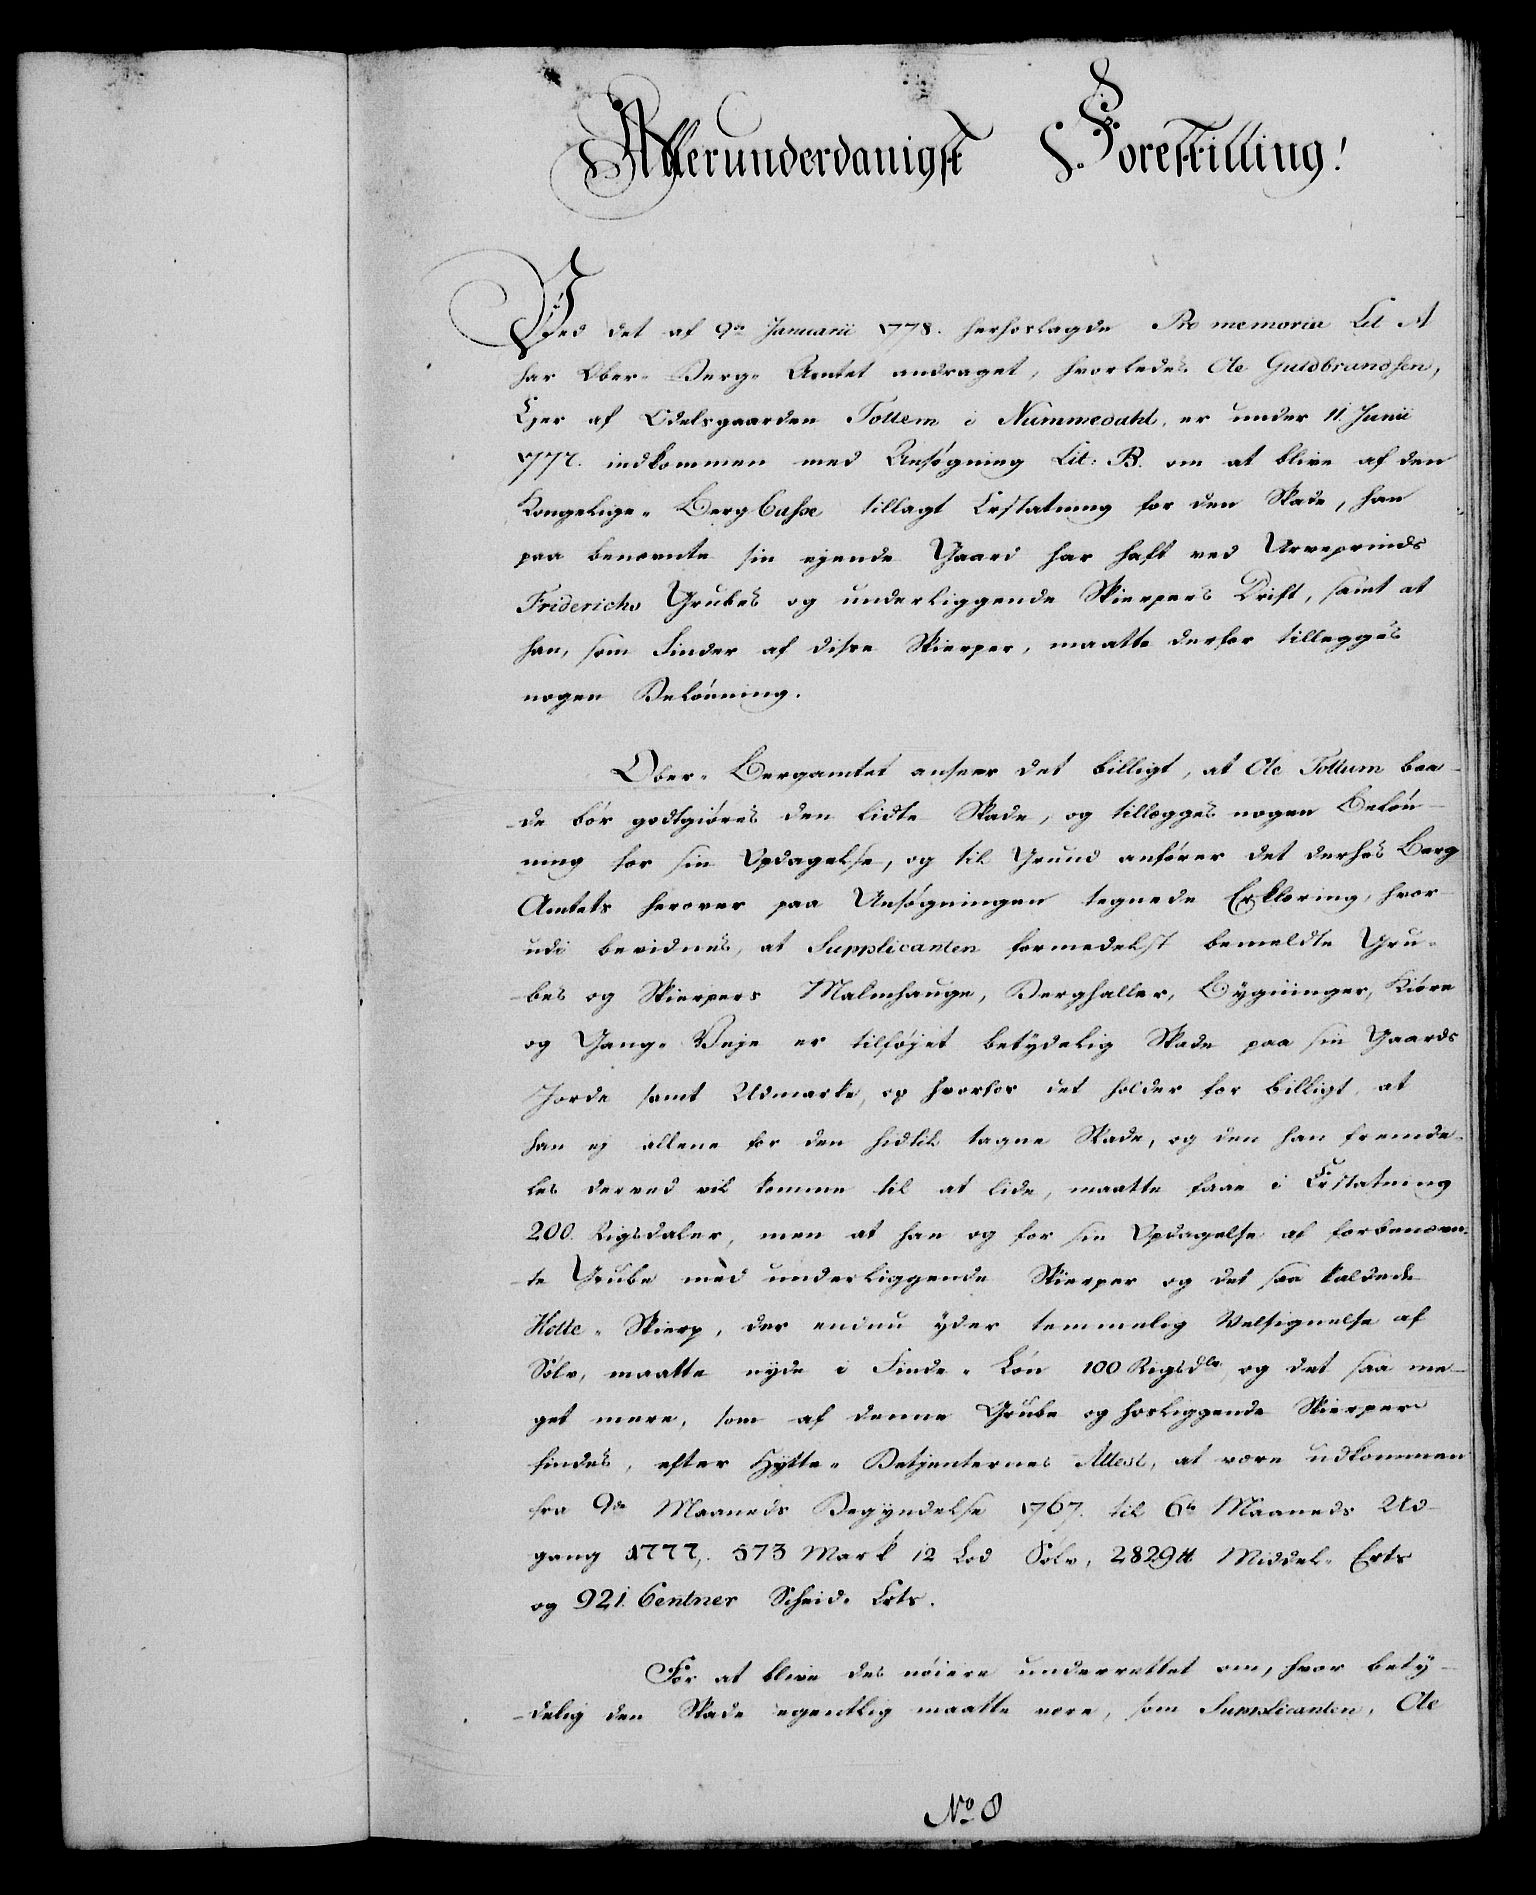 Allerunderdanigst Forestilling!
Ved det af 9de Januarii 1778. herhoslagde Pro memoria Lit A
har Ober- Berg- Amtet andraget, hvorledes Ole Guldbrandsen,
Ejer af Odelsgaarden Tollem i Nummedahl, er under 11. Junii
1777. indkommen med Ansøgning Lit: B. om at blive af den
Kongelige- Berg Casse tillagt Erstatning for den Skade, han
paa benævnte sin ejende Gaard har haft ved Arveprinds
Friderichs Grubes og underliggende Skierpers Drift, samt at
han, som Finder af disse Skierper, maatte derfor tillegges
nogen Belønning.
Ober- Bergamtet anseer det billigt, at Ole Tollum baa-
de bør godtgiøres den lidte Skade, og tillægges nogen Beløn-
ning for sin Opdagelse, og til Grund anfører det derhos Berg
Amtets herover paa Ansøgningen tegnede Erklæring, hvor-
udi bevidnes, at Supplicanten formedelst bemeldte Gru-
bes og Skierpers Malmhauge, Berghaller, Bygninger, Kiøre
og Gang- Veje er tilføjet betydelig Skade paa sin Gaards
Jorde samt Udmarke, og hvorfor det holder for billigt, at
han ej allene for den hidtil tagne Skade, og den han fremde-
les derved vil komme til at lide, maatte faae i Erstatning
200. Rigsdaler, men at han og for sin Opdagelse af forbenævn-
te Grube med underliggende Skierper og det saa kaldede
Hotte- Skierp, der endnu yder temmelig Velsignelse af
Sølv, maatte nyde i Finde- Løn 100 Rigsdlr, og det saa me-
get mere, som af denne Grube og hosliggende Skierper
findes, efter Hytte- Betjenternes Attest, at være udkommen
fra 9de Maaneds Begyndelse 1767. til 6te Maaneds Ud-
gang 1777. 573 Mark 12 Lod Sølv, 2829 ℔ Middel- Erts
og 921. Centner Scheid- Erts.
For at blive des nøiere underrettet om, hvor bety-
delig den Skade egentlig maatte være, som Supplicanten, Ole
No 8